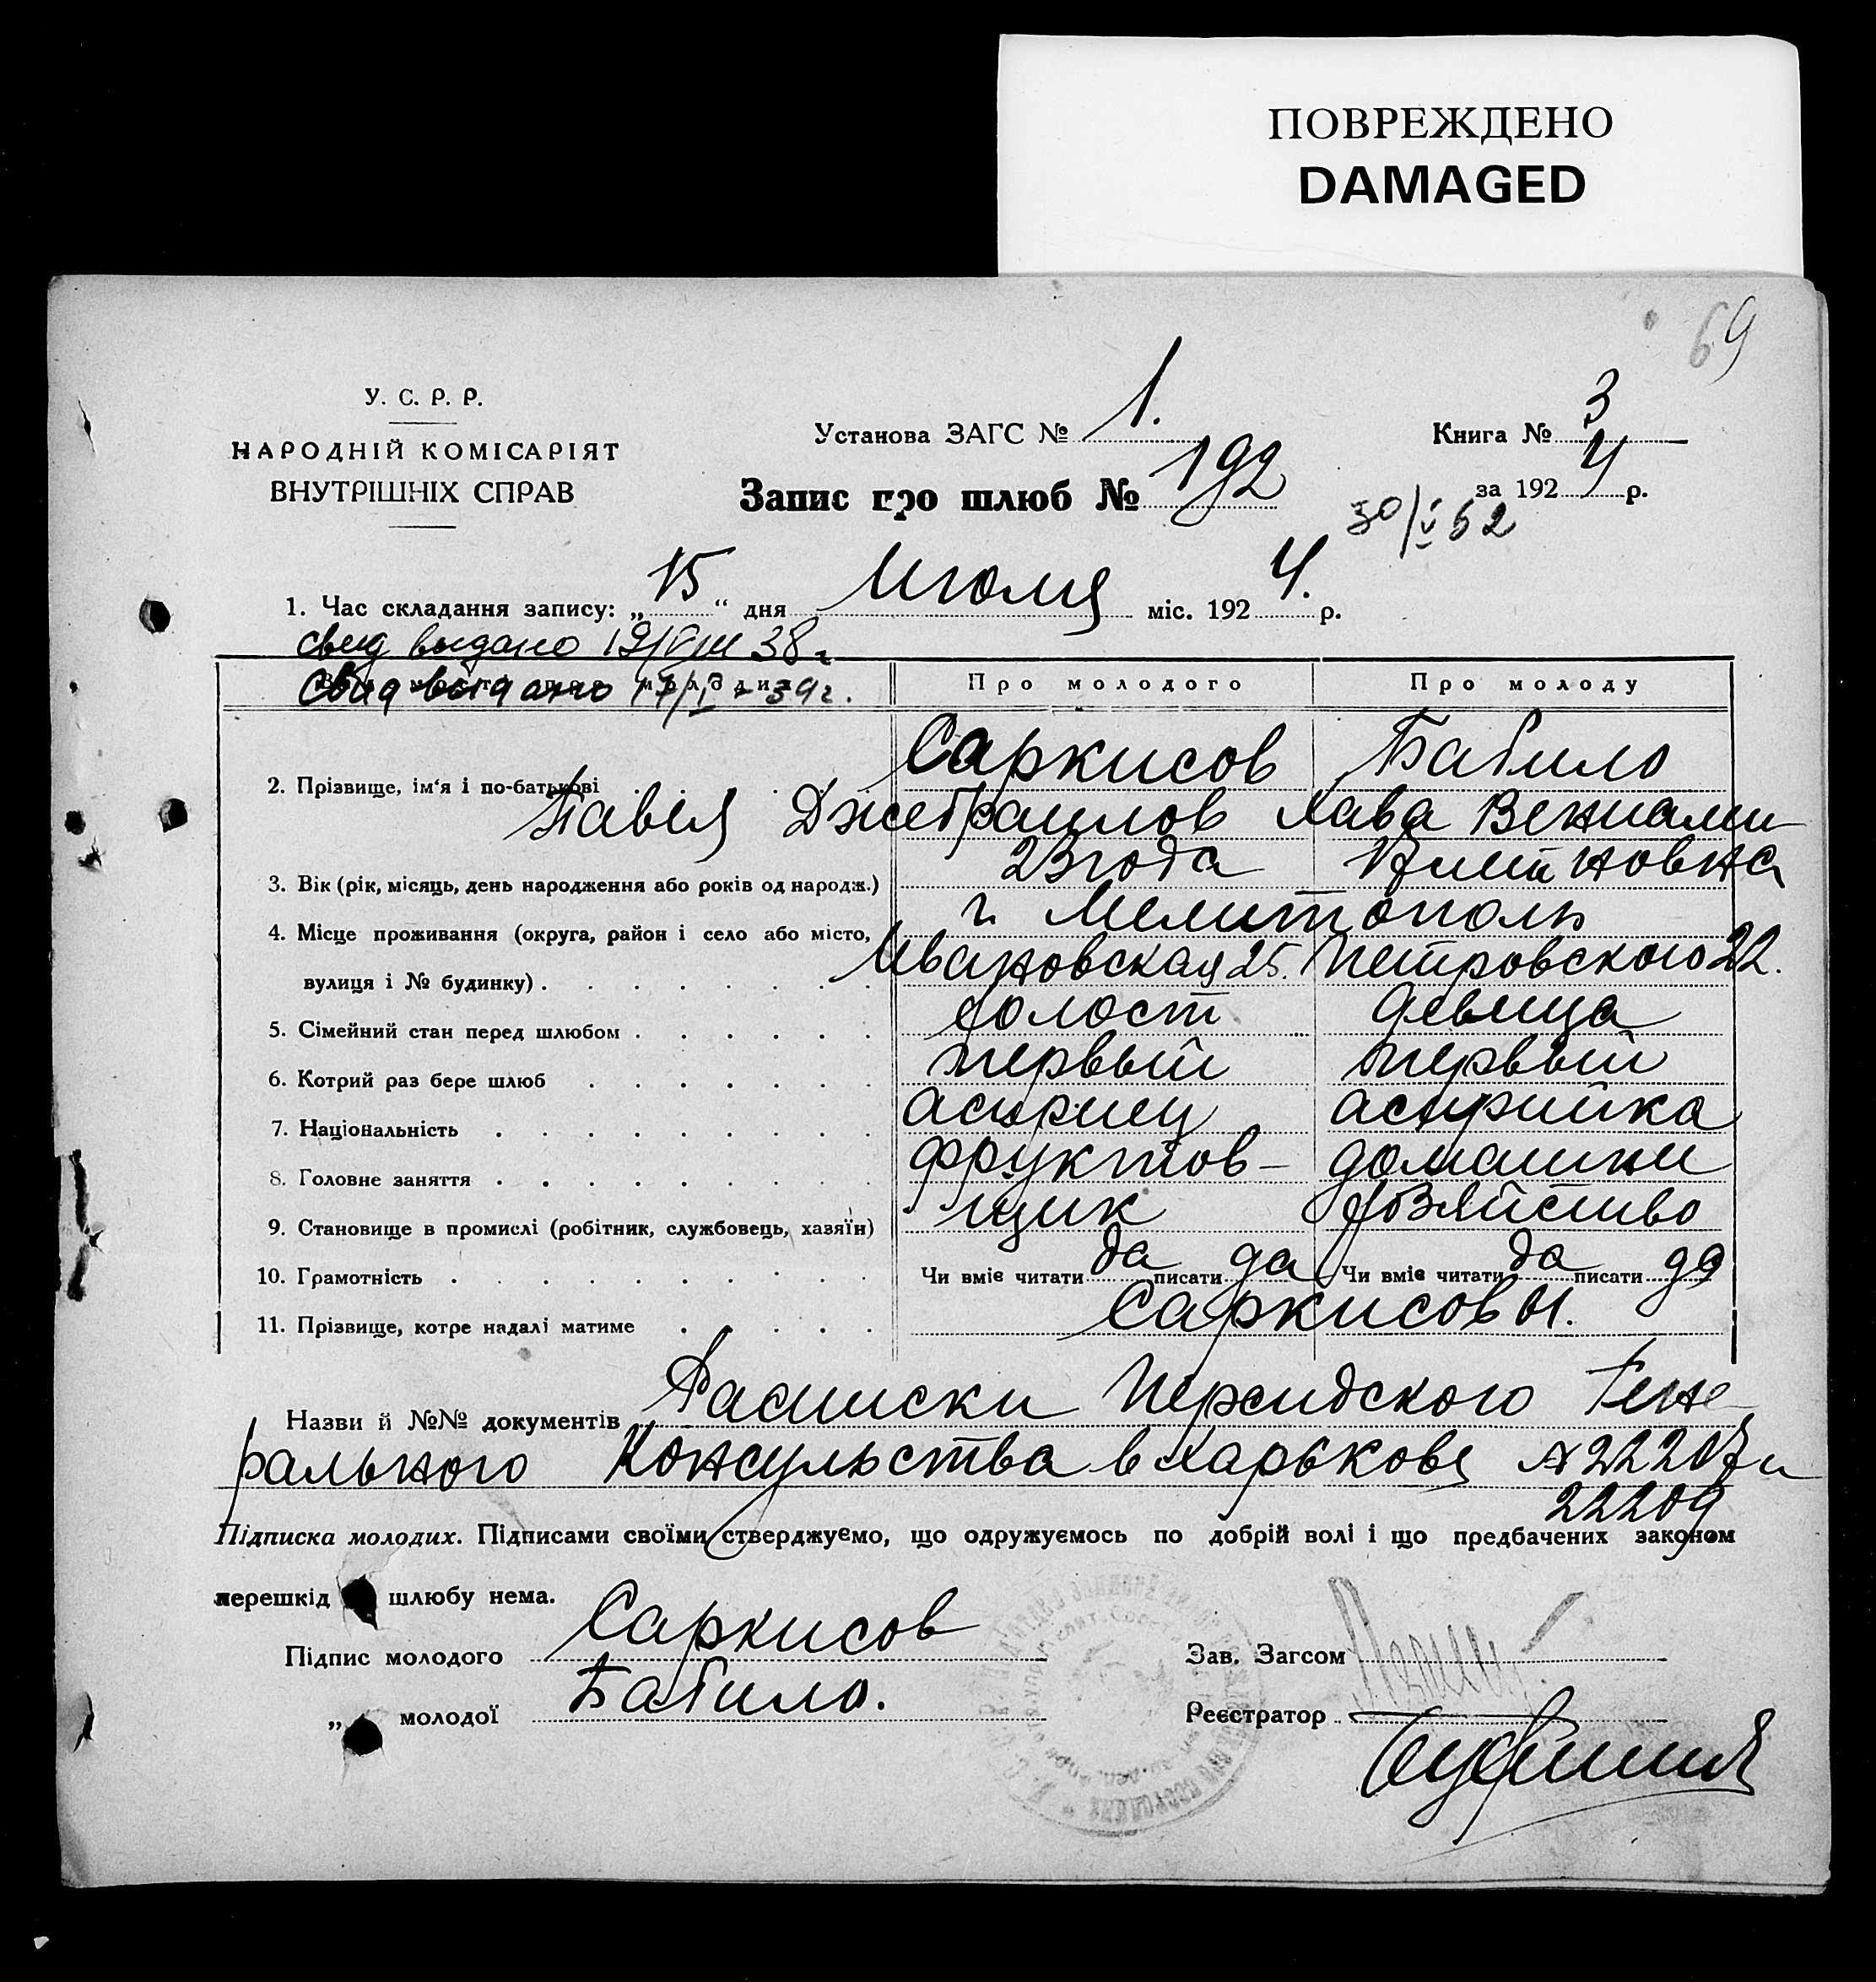 ПОВРЕЖДЕНО
DAMAGED
69
У. С. Р. Р.
НАРОДНІЙ КОМІСАРІЯТ
ВНУТРІШНІХ СПРАВ
Установа ЗАГС № 1.
Книга № 3
Запис про шлюб № 192
за 1924 р.
30/V 62
1. Час складання запису: „15“ дня Июля міс. 1924. р.
свид выдано 19/VIII 38 г
Свид выдано 17/I - 39 г.
Про молодого Про молоду
2. Прізвище, ім'я і по-батькові Саркисов Бабило
Павел Джебраилов Хава Вениами
3. Вік (рік, місяць, день народження або років од народж.) 23 года 17 лет новна
4. Місце проживання (округа, район і село або місто, г. Мелитополь
вулиця і № будинку) Ивановская 25. Петровского 22.
5. Сімейний стан перед шлюбом холост девица
6. Котрий раз бере шлюб первый первый
7. Національність асириец асирийка
8. Головне заняття фруктов- домашнее
9. Становище в промислі (робітник, службовець, хазяїн) щик хозяйство
10. Грамотність Чи вміє читати да писати да Чи вміє читати да писати да
11. Прізвище, котре надалі матиме Саркисовы.
Назви й №№ документів Расписки Персидского Гене-
рального Консульства в Харькове № 22207 и
22209
Підписка молодих. Підписами своїми стверджуємо, що одружуємось по добрій волі і що предбачених законом
перешкід шлюбу нема.
Підпис молодого Саркисов
Зав. Загсом
„ молодої Бабило.
Реєстратор